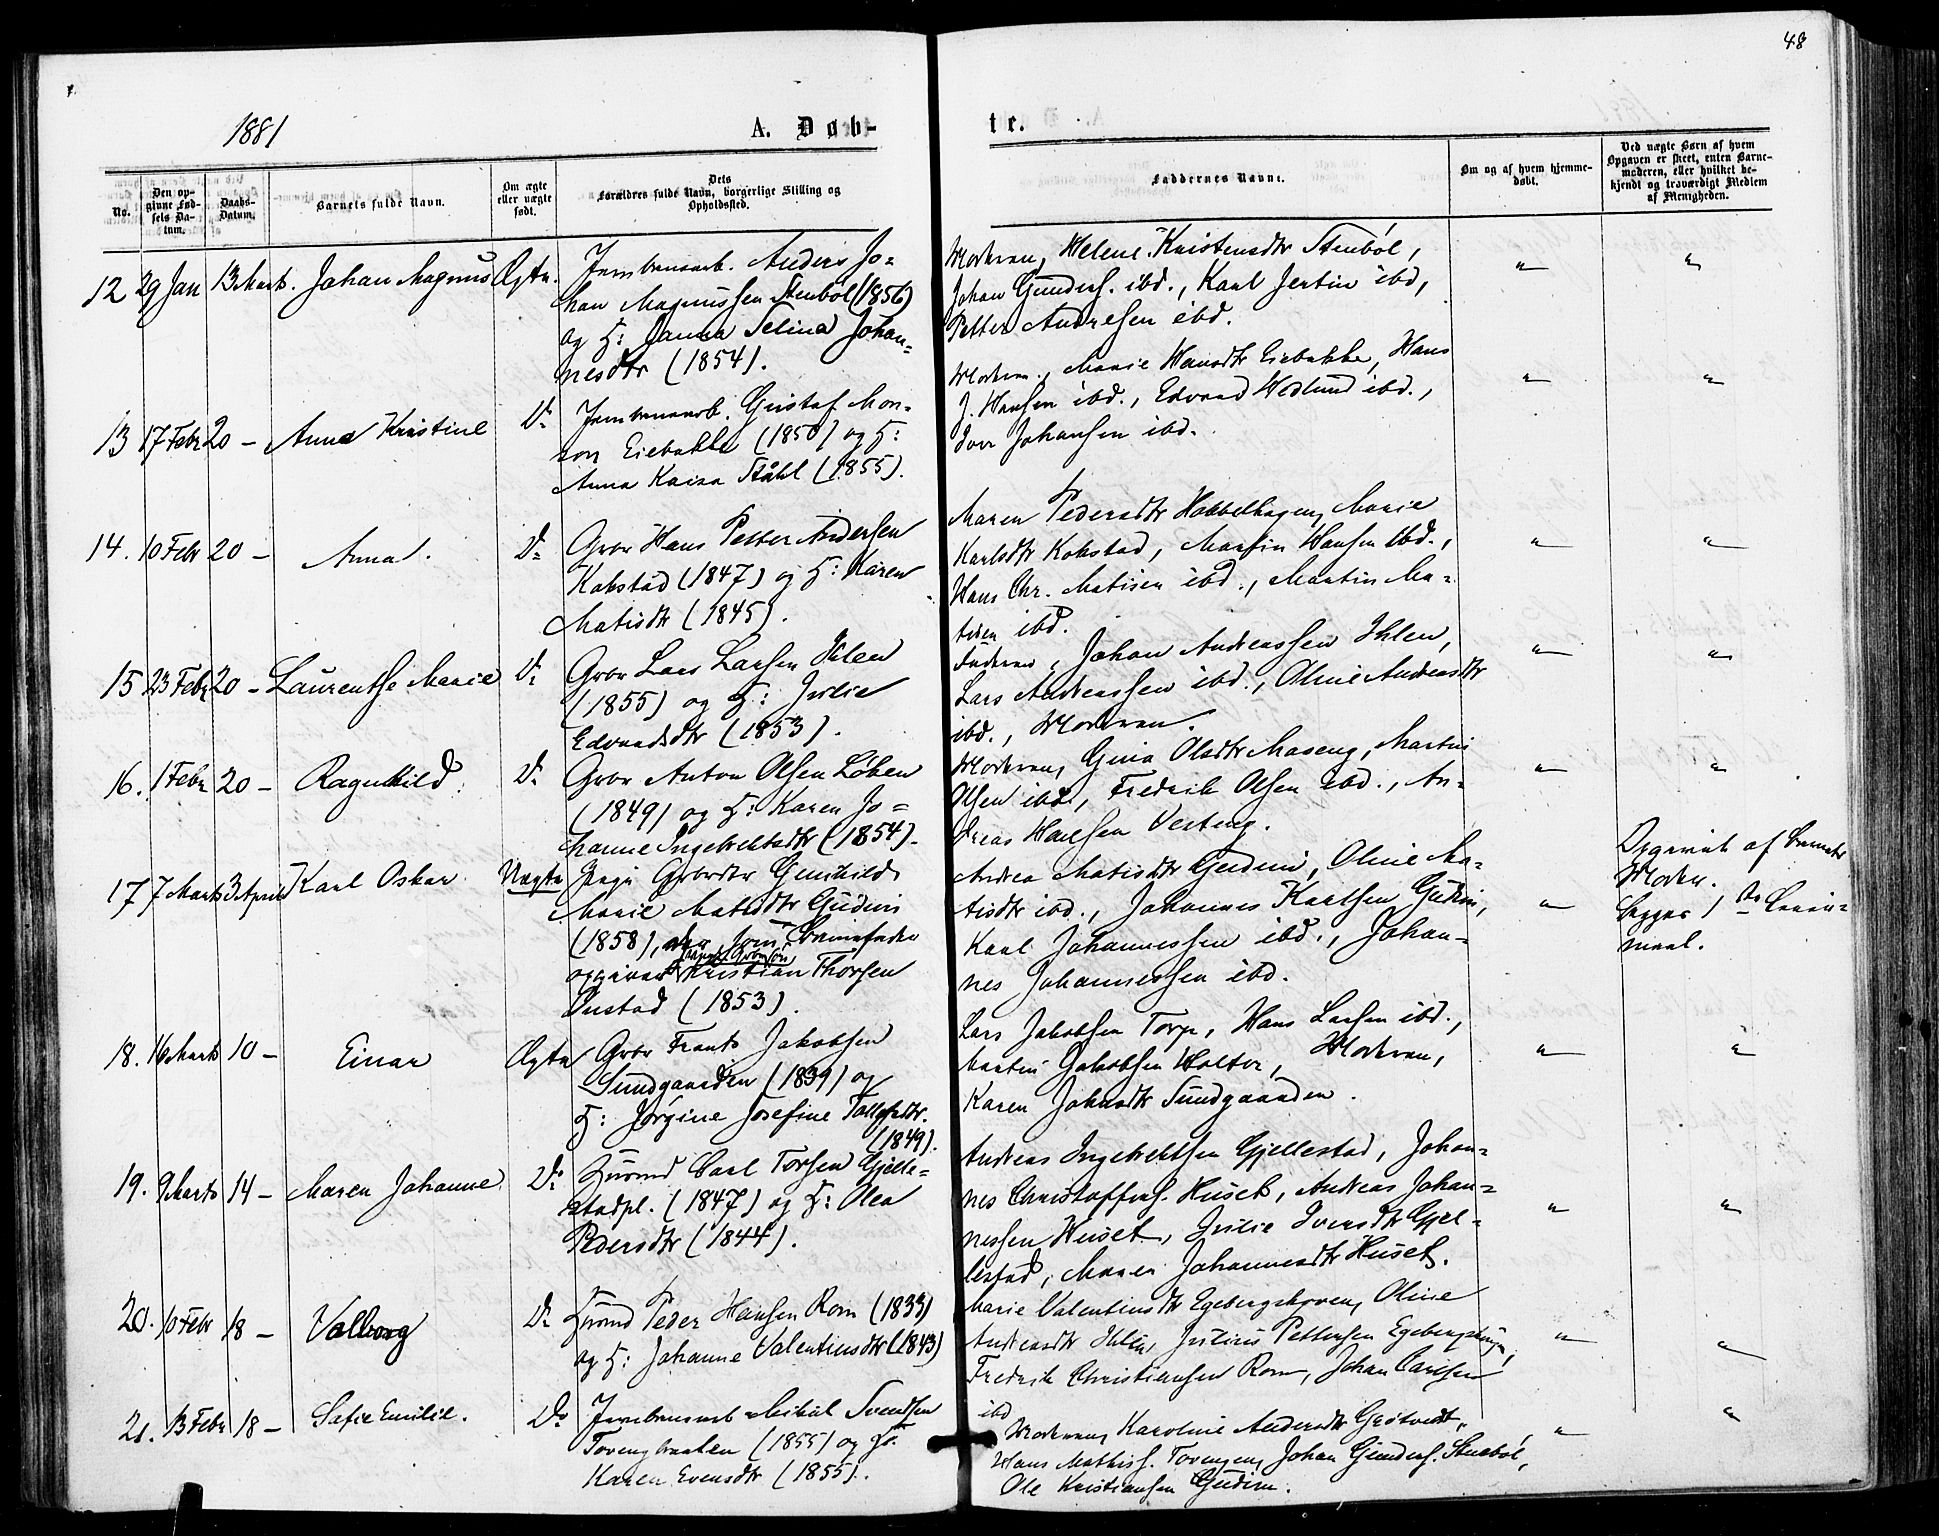 48
1881
A. Døb-
te.
No.
Den op-
givne Fød-
sels Da-
tum.
Daabs-
Datum.
Barnets fulde Navn.
Om ægte
eller uægte
født.
Dets
Forældres fulde Navn, borgerlige Stilling og
Opholdssted.
Faddernes Navne.
Om og af hvem hjemme-
døbt.
Ved uægte Børn af hvem
Opgaven er skeet, enten Barne-
moderen, eller hvilket be-
kjendt og troværdigt Medlem
af Menigheden.
12 29 Jan 13 Marts. Johan Magnus Ægte.
Jernbanearb. Anders Jo-
han Magnussen Stenbøl (1856)
og H: Johan-
nesdtr (1854).
Modren, Helene Kristensdtr Stenbøl,
Johan Gunders. ibd., Karl ibd,
Petter Andresen ibd.
13 17 Febr 20 - Anna Kristine Do
Jernbanearb. Gustaf Mon-
son Eiebakke (1850) og H:
Anna Kaisa Ståhl (1855).
Modren, Marie Hansdtr Eiebakke, Hans
J. Hansen ibd., Edvard Wedlund ibd.,
Johansen ibd.
14. 10 Febr 20 - Anna. Do
Gbr Hans Petter Andersen
Kokstad (1847) og H: Karen
Matisdtr (1845).
Maren Pedersdtr Marie
Karlsdtr Kokstad, Martin Hansen ibd.,
Hans Chr. Matisen ibd., Martin Ma-
tisen ibd.
15 23 Febr 20 - Laurentse Marie Do
Gbr Lars Larsen Ihlen
(1855) og H: Julie
Edvardsdtr (1853).
Fadren, Johan Andreassen Ihlen,
Lars Andreassen ibd., Oline Andreasdtr
ibd., Modren.
16. 1 Febr 20 - Ragnhild. Do
Gbr Anton Olsen Løken
(1849) og H: Karen Jo-
hanne Ingebrektsdtr (1854).
Modren, Gina Olsdtr Maseng, Martin
Olsen ibd., Fredrik Olsen ibd., An-
dreas Hansen Vesteng.
17 7 Marts 3 April Karl Oskar. Uægte
Pige Gbrdtr Gunhild
Marie Matisdtr Gudim
(1858), der som Barnefader
opgiver Kristian Thorsen
(1853).
Andrea Matisdtr Gudim, Oline Ma-
tisdtr ibd., Johannes Karlsen Gudim,
Karl Johannessen ibd., Johan-
nes Johannessen ibd.
Opgivet af Barnets
Moder.
Begges 1ste Leier-
maal.
18. 16 Marts 10 - Einar Ægte
Gbr Frants Jakobsen
Sundgaarden (1839) og
H: Jørgine Josefine
(1849).
Lars Jakobsen Torp, Hans Larsen ibd.,
Martin Jakobsen Holter, Modren,
Karen Johansdtr Sundgaarden.
19. 9 Marts 14 - Maren Johanne. Do
Husmd Carl Torsen Gjelle-
stadpl. (1847) og H: Olea
Pedersdtr (1844).
Andreas Ingebrektsen Gjellestad, Johan-
nes Christoffers. Huset, Andreas Johan-
nessen Huset, Julie Iversdtr Gjel-
lestad, Maren Johannesdtr Huset.
20. 10 Febr 18 - Valborg Do
Husmd Peder Hansen Rom (1833)
og H: Johanne Valentinsdtr (1843)
Marie Valentinsdtr Oline
Andreasdtr Ihlen, Julius Pettersen
Fredrik Christiansen Rom, Johan Carlsen
ibd
21. 13 Febr 18 - Sofie Emilie. Do
Jernbanearb Mikal Svendsen
Torengbraaten (1855) og H:
Karen Evensdtr (1855).
Modren, Karoline Andersdtr Grøtvedt,
Hans Mathiss. Torengen, Johan Gunders. Stenbøl,
Ole Kristiansen Gudim.